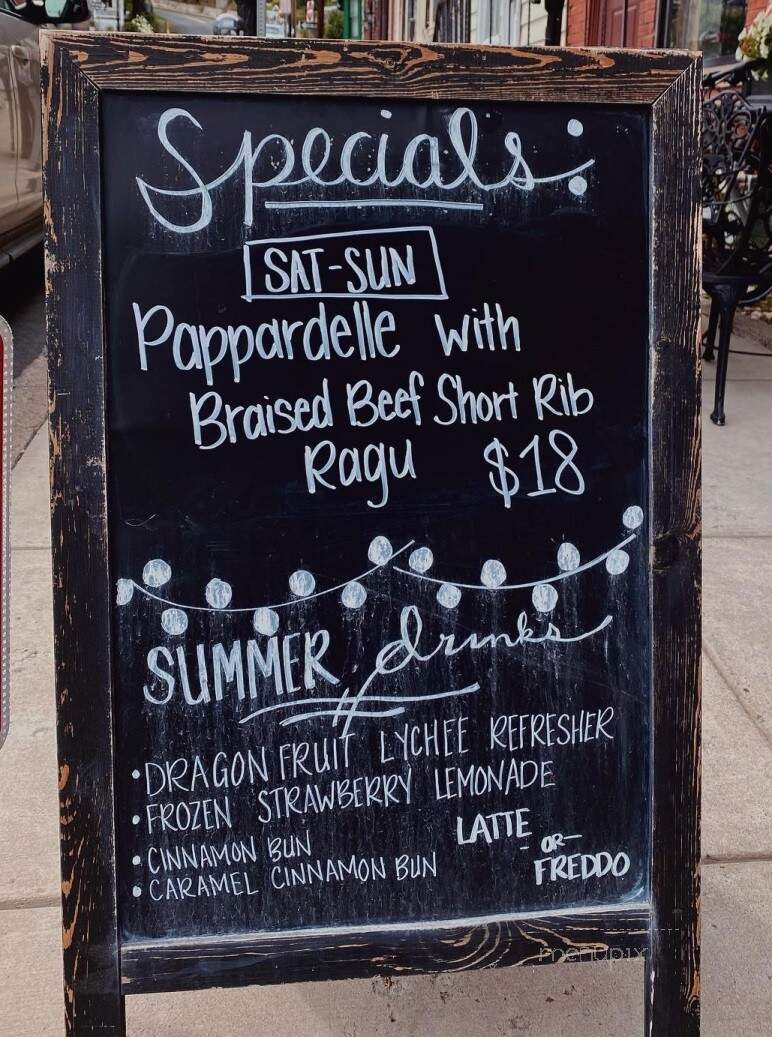 Specials:
SAT-SUN
Pappardelle with
Braised Beef Short Rib
Ragu $18
SUMMER drinks
• DRAGON FRUIT LYCHEE REFRESHER
• FROZEN STRAWBERRY LEMONADE
• CINNAMON BUN
• CARAMEL CINNAMON BUN
LATTE
-OR-
FREDDO
menupix